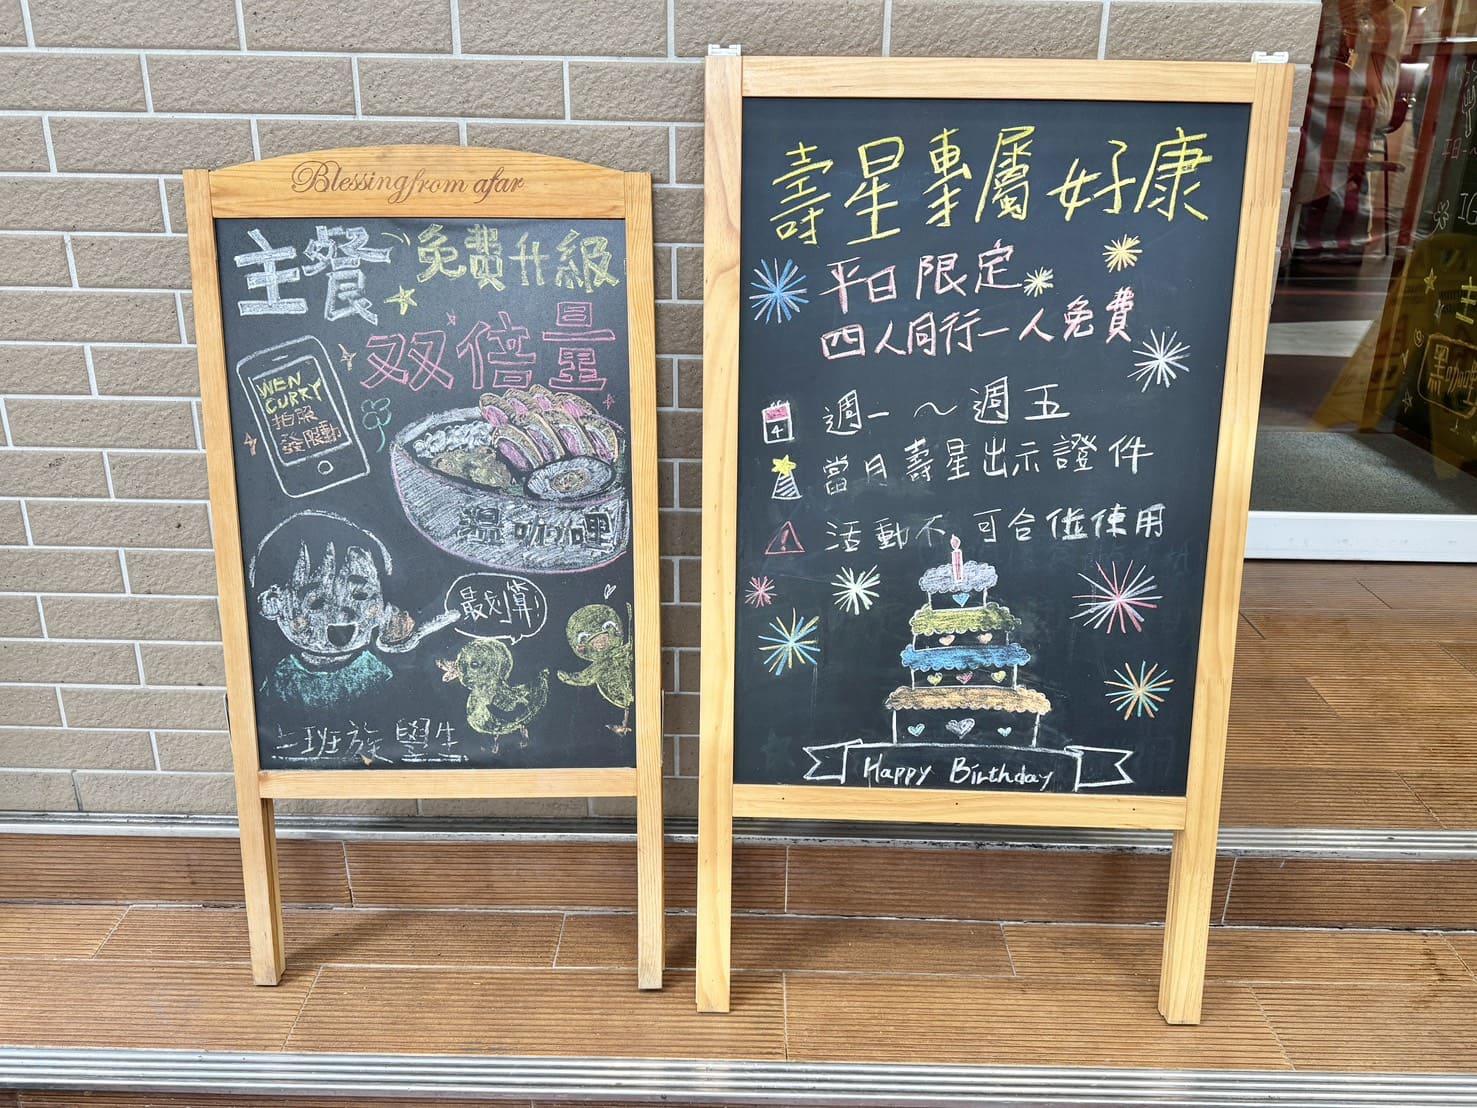 Blessing from afar
主餐 免費升級
双倍量
WEN
CURRY
拍照
發限動
溫咖哩
最划算!
上班族 學生
壽星專屬好康
平日限定
四人同行一人免費
週一~週五
4
當月壽星出示證件
活動不可合併使用
Happy Birthday
黑咖哩